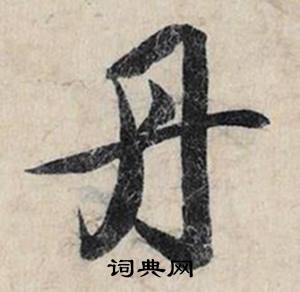 丹
词典网